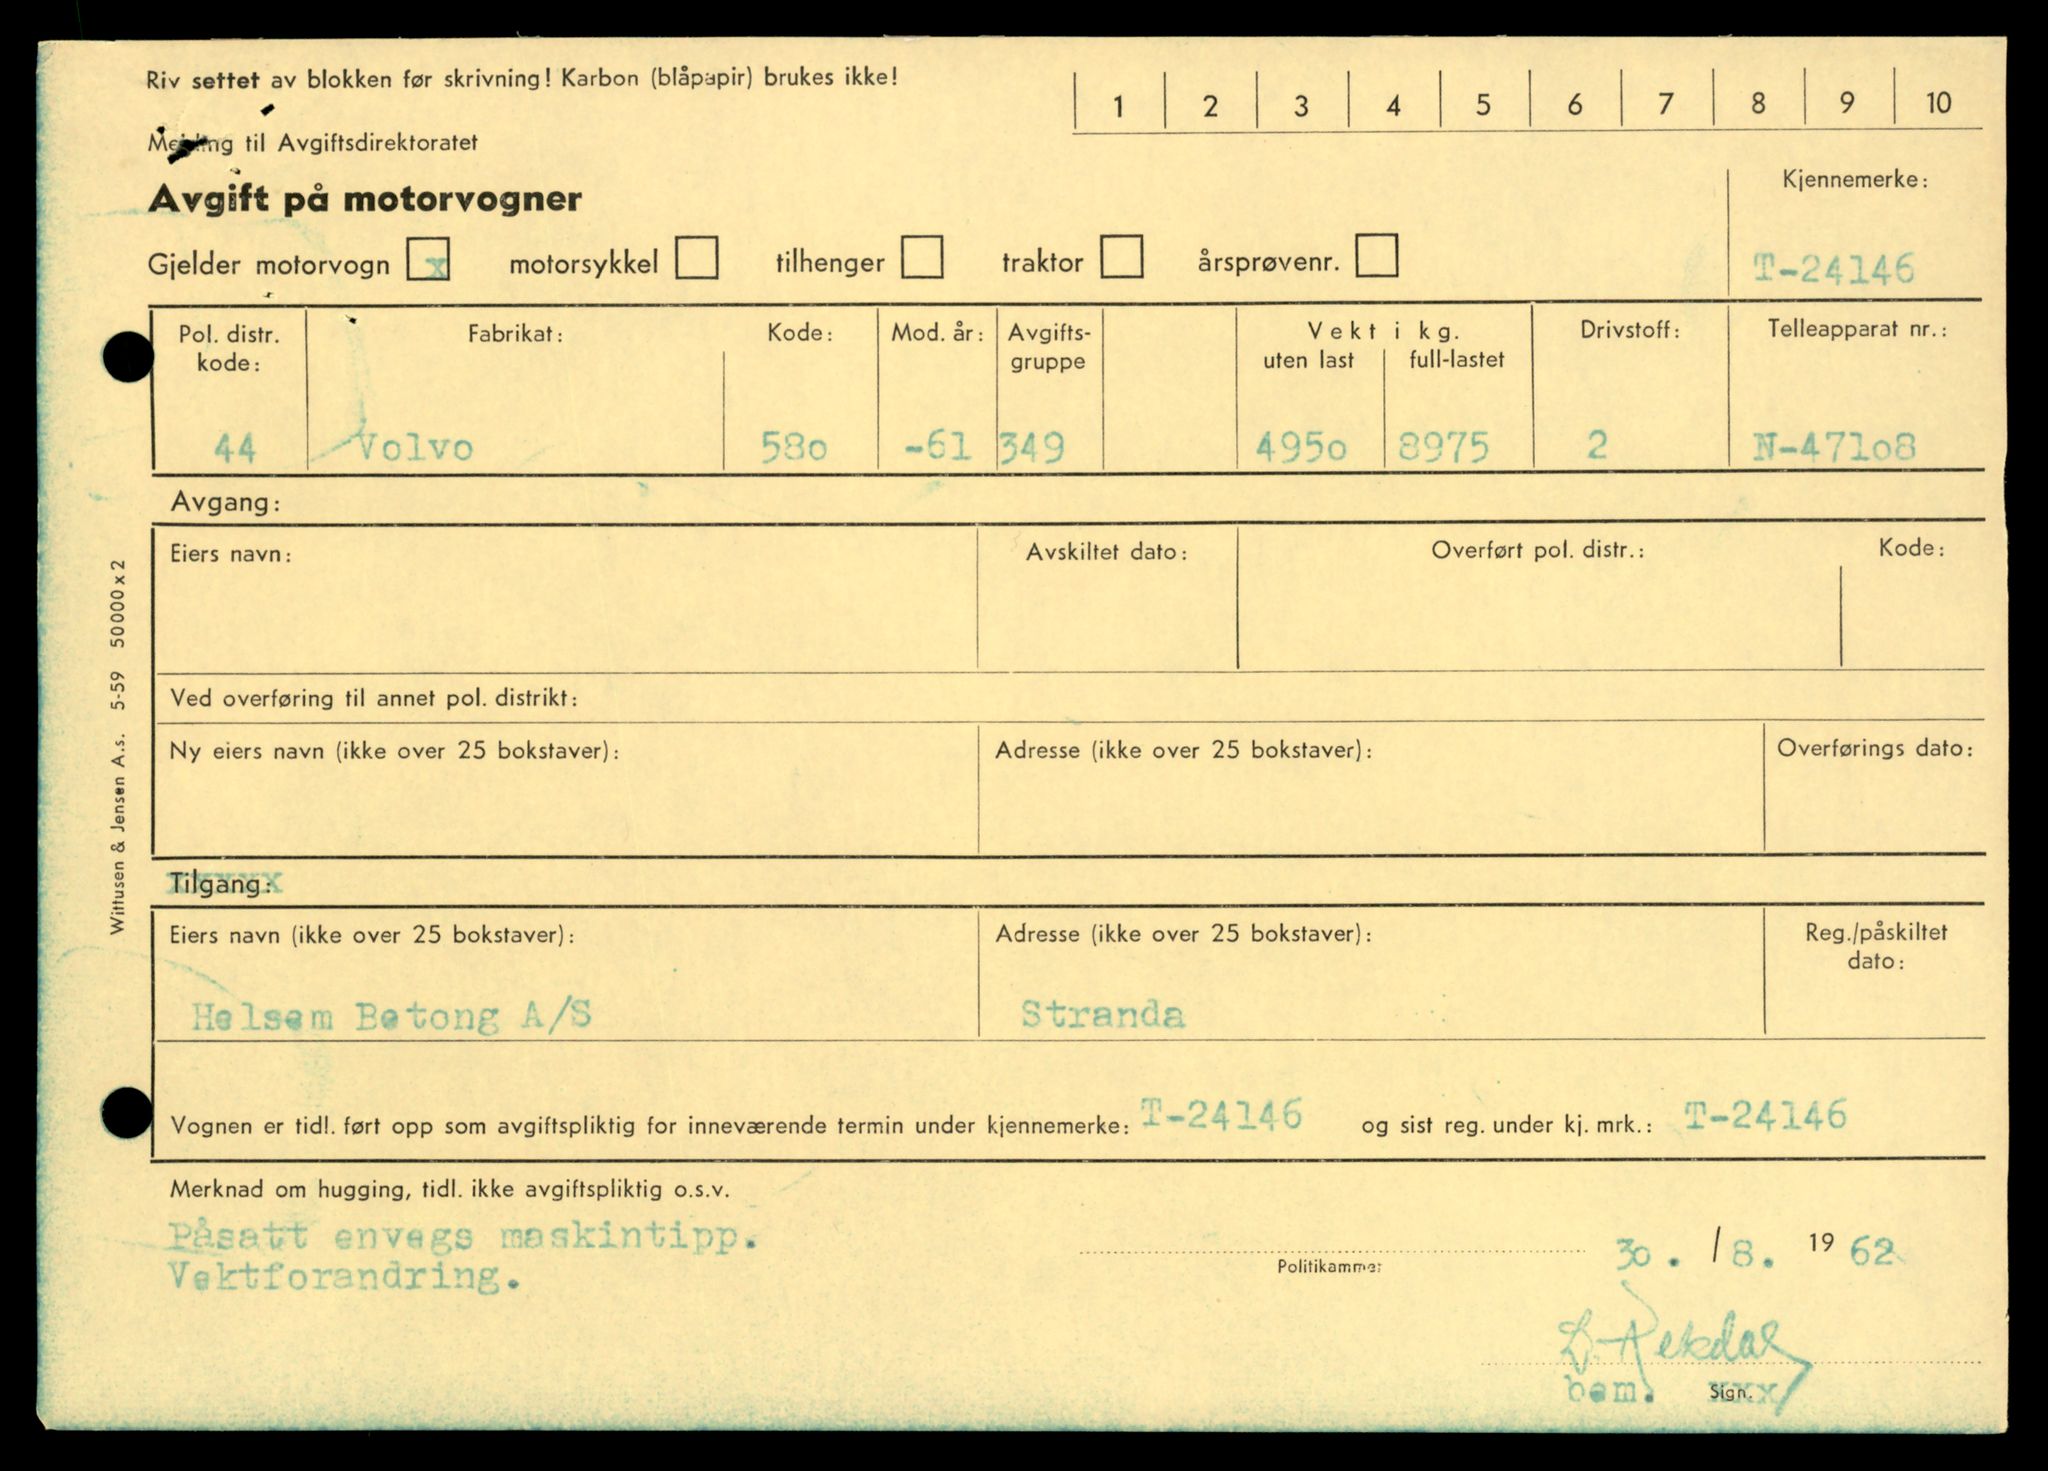 Riv settet av blokken før skrivning! Karbon (blåpapir) brukes ikke!
1 2 3 4 5 6 7 8 9 10
Melding til Avgiftsdirektoratet
Avgift på motorvogner
Kjennemerke:
Gjelder motorvogn x motorsykkel tilhenger traktor årsprøvenr.
T-24146
Pol. distr. kode: Fabrikat: Kode: Mod. år: Avgifts-gruppe Vekt i kg. uten last full-lastet Drivstoff: Telleapparat nr.:
44 Volvo 580 -61 349 4950 8975 2 N-47108
Avgang:
Eiers navn: Avskiltet dato: Overført pol. distr.: Kode:
Ved overføring til annet pol. distrikt:
Ny eiers navn (ikke over 25 bokstaver): Adresse (ikke over 25 bokstaver): Overførings dato:
Tilgang:
Eiers navn (ikke over 25 bokstaver): Adresse (ikke over 25 bokstaver): Reg./påskiltet dato:
Helsem Betong A/S Stranda
Vognen er tidl. ført opp som avgiftspliktig for inneværende termin under kjennemerke: T-24146 og sist reg. under kj. mrk.: T-24146
Merknad om hugging, tidl. ikke avgiftspliktig o.s.v.
Påsatt envegs maskintipp.
Vektforandring.
Politikammer
30. / 8. 1962
Rekdal
bem. Sign.
Wittusen & Jensen A.s. 5-59 50000x2